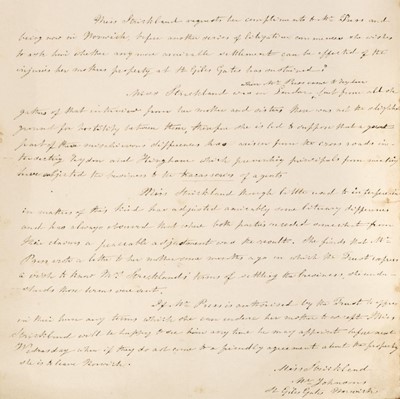 Miss Strickland requests her compliments to Mr. Press and
being now in Norwich, before another series of litigation commences she wishes
to ask him whether any more amicable settlement can be effected of the
injuries her mothers property at St Giles Gates has sustained?
Miss Strickland was in London last
of that interview from her mother and sisters there was not the slightest
ground for hostility between them therefore she is led to suppose that a great
part of the mischievous differences has arisen from the cross roads in
preventing principals from meeting
have adjusted the business to the of agents
Miss Strickland though little used to interfere
in matters of this kind has adjusted amicably some literary differences
and has always observed that when both parties receded somewhat from
their claims a peaceable adjustment was the result. She finds that Mr
Press wrote a letter to her mother some months ago in which the Trust express
a wish to know Mrs Strickland's terms of settling the business, she under-
stands these terms were sent.
If Mr. Press is authorised by the Trust to offer
on their part any terms which she can induce her mother to accept Miss
Strickland will be happy to see him any time he may appoint before next
Wednesday when if they do not come to a friendly agreement about the property
she is to leave Norwich.
Miss Strickland
Mrs Johnsons
St Giles Gates Norwich